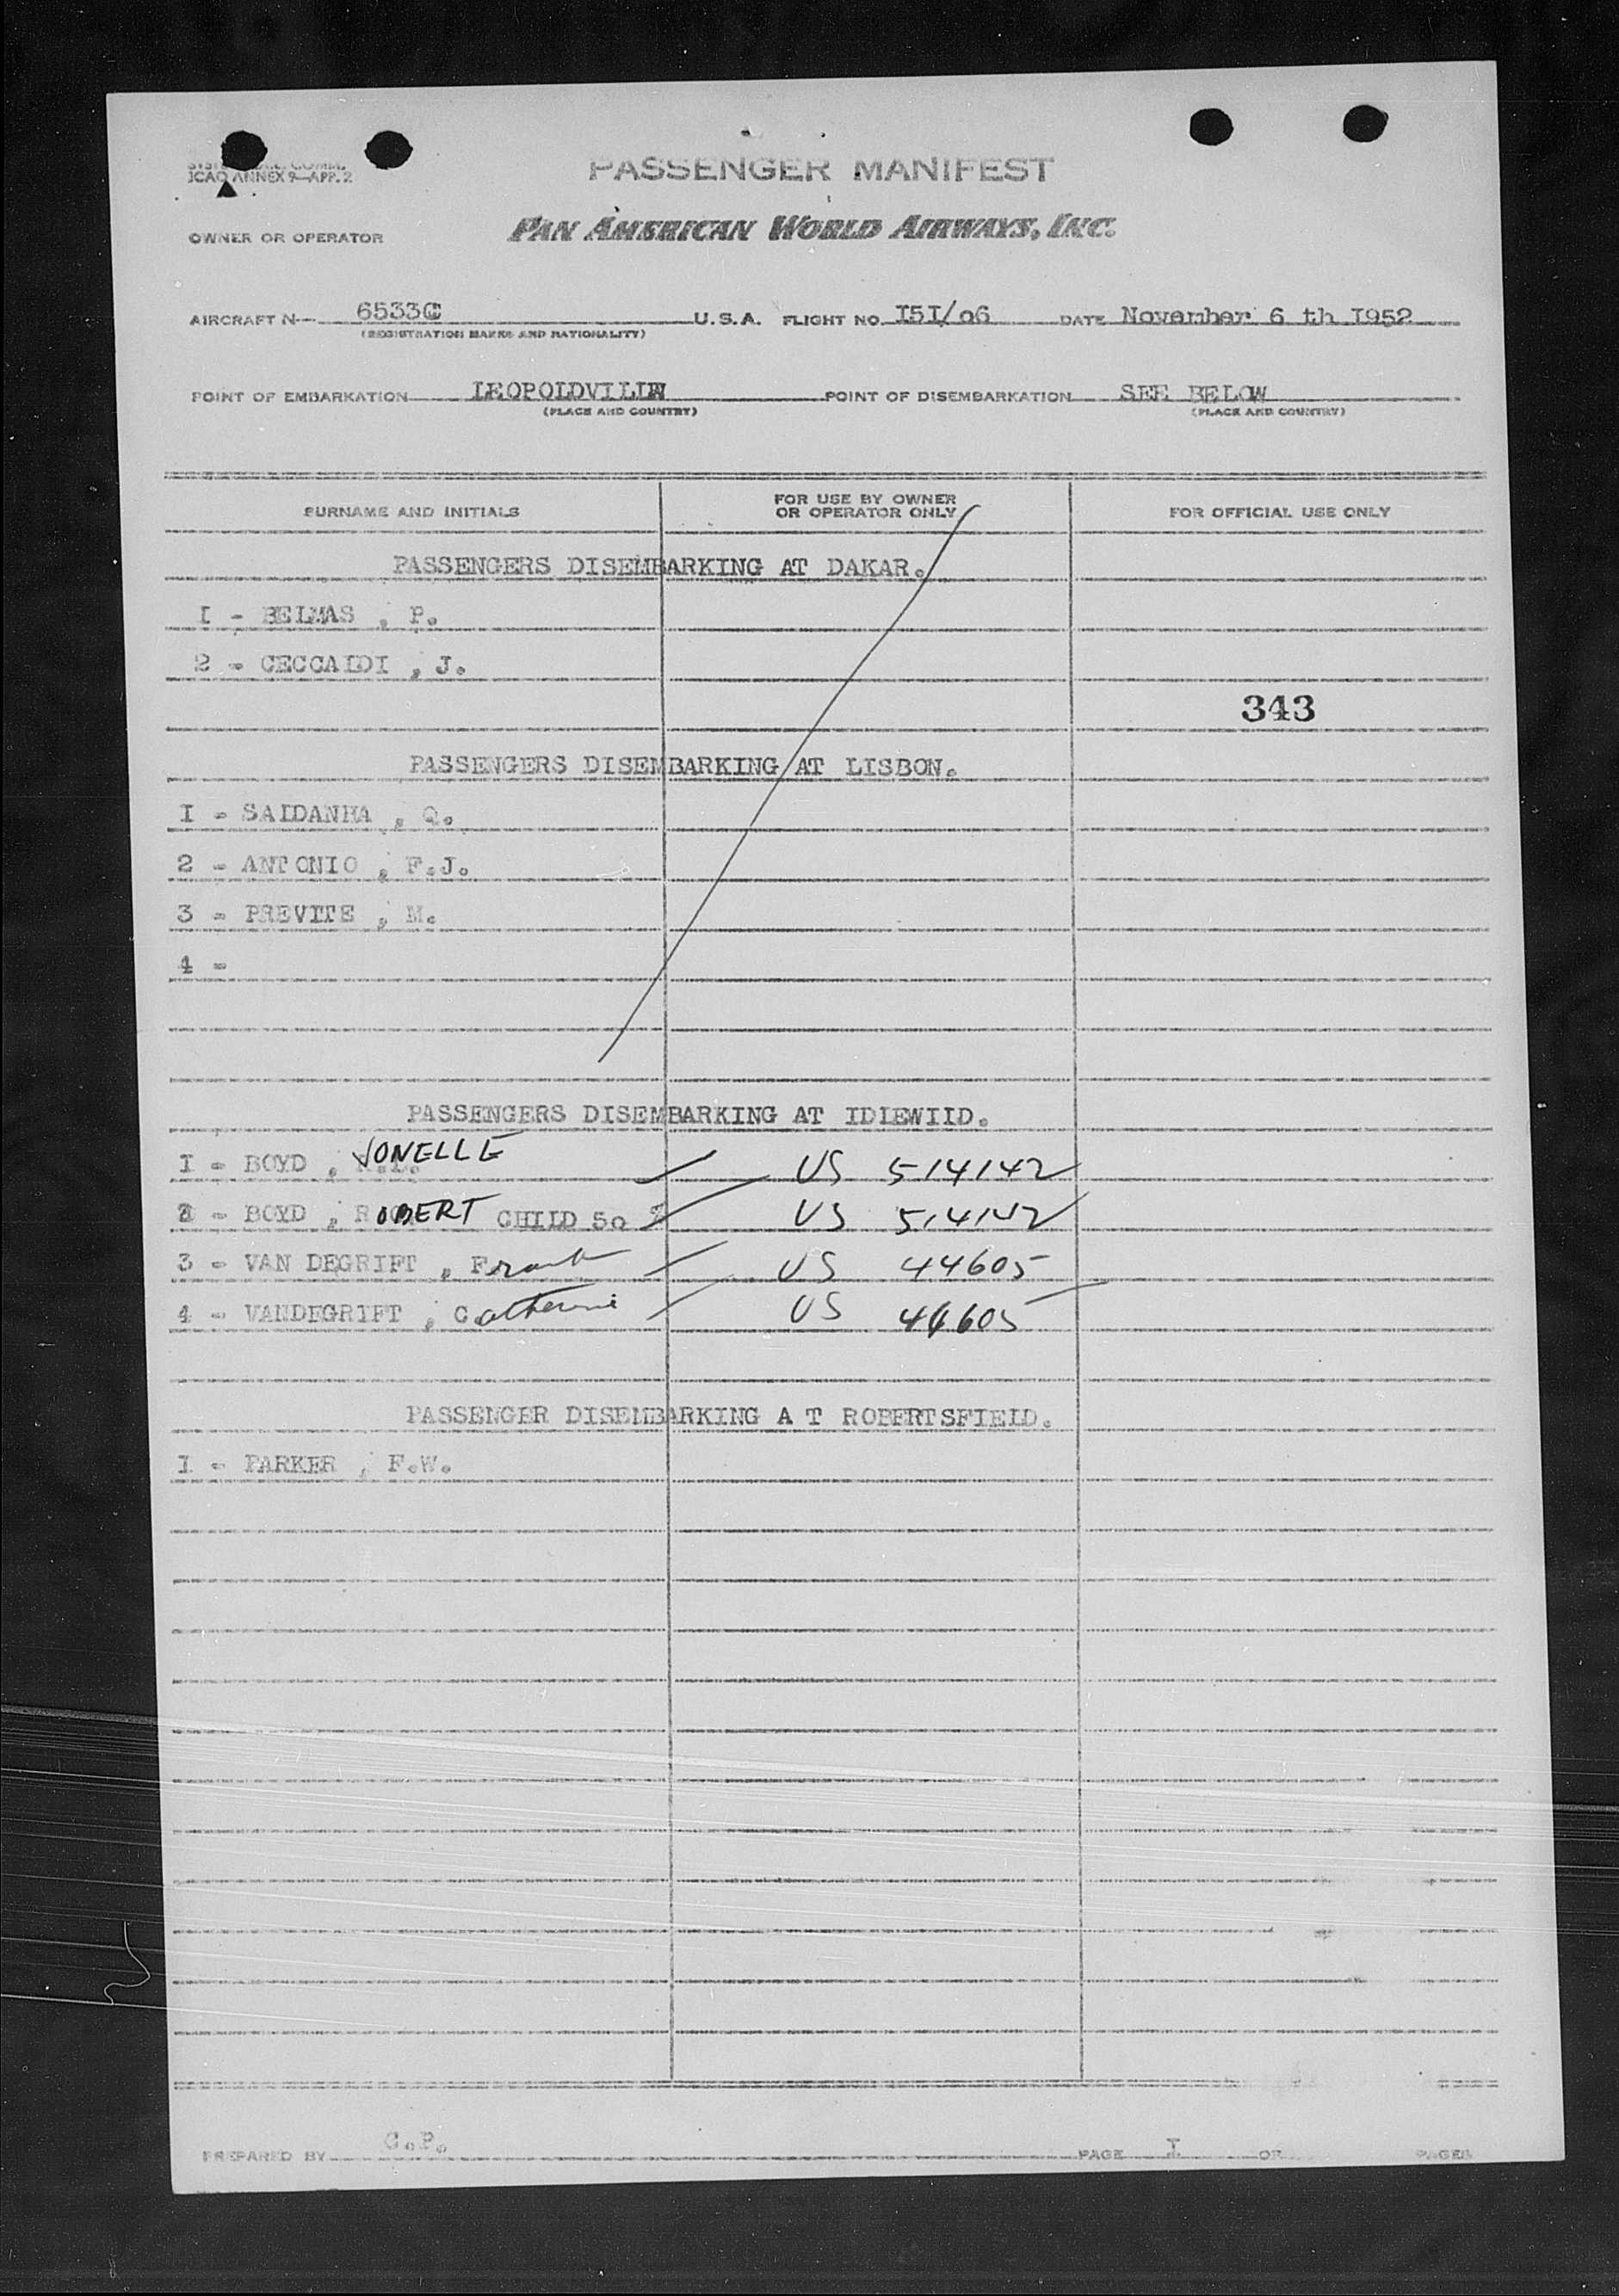 ICAO ANNEX 9—APP. 2
PASSENGER MANIFEST
OWNER OR OPERATOR PAN AMERICAN WORLD AIRWAYS, INC.
AIRCRAFT N— 6533C U.S.A. FLIGHT NO. I5I/o6 DATE November 6 th I952
(REGISTRATION MARKS AND NATIONALITY)
POINT OF EMBARKATION LEOPOLDVILLE POINT OF DISEMBARKATION SEE BELOW
(PLACE AND COUNTRY) (PLACE AND COUNTRY)
SURNAME AND INITIALS FOR USE BY OWNER OR OPERATOR ONLY FOR OFFICIAL USE ONLY
PASSENGERS DISEMBARKING AT DAKAR.
I - BELMAS , P.
2 - CECCALDI , J.
343
PASSENGERS DISEMBARKING AT LISBON.
I - SALDANHA , Q.
2 - ANTONIO , F.J.
3 - PREVITE , M.
4 -
PASSENGERS DISEMBARKING AT IDLEWILD.
I - BOYD , JONELLE US 514142
2 - BOYD , ROBERT CHILD 5o % US 514142
3 - VAN DEGRIFT , Frank US 44605
4 - VANDEGRIFT , Catherine US 44605
PASSENGER DISEMBARKING A T ROBERTSFIELD.
I - PARKER , F.W.
PREPARED BY G.P. PAGE I OF PAGES